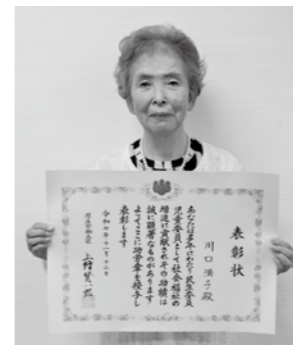 表彰状
川口 殿
あなたは多年にわたり民生委員
児童委員として社会福祉の
増進に貢献されその功績は
誠に顕著なものがあります
よってここに功労章を授与し
表彰します
令和七年十一月十二日
厚生労働大臣 上野賢一郎